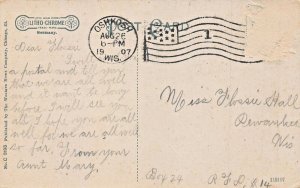 LITHO-CHROME
Germany.
POST CARD
OSHKOSH
AUG 26
6-PM
1907
WIS.
1
Dear Flossie
I will
a postal and tell you
that we are all well
it wont be long
before I will see you
all I hope you are all
well for we are all well
so far. From your
Aunt Mary.
Miss Flossie Hall
Pewaukee
Wis
Box 24 R.F.D. #14
Published by the Western News Company, Chicago, Ill.